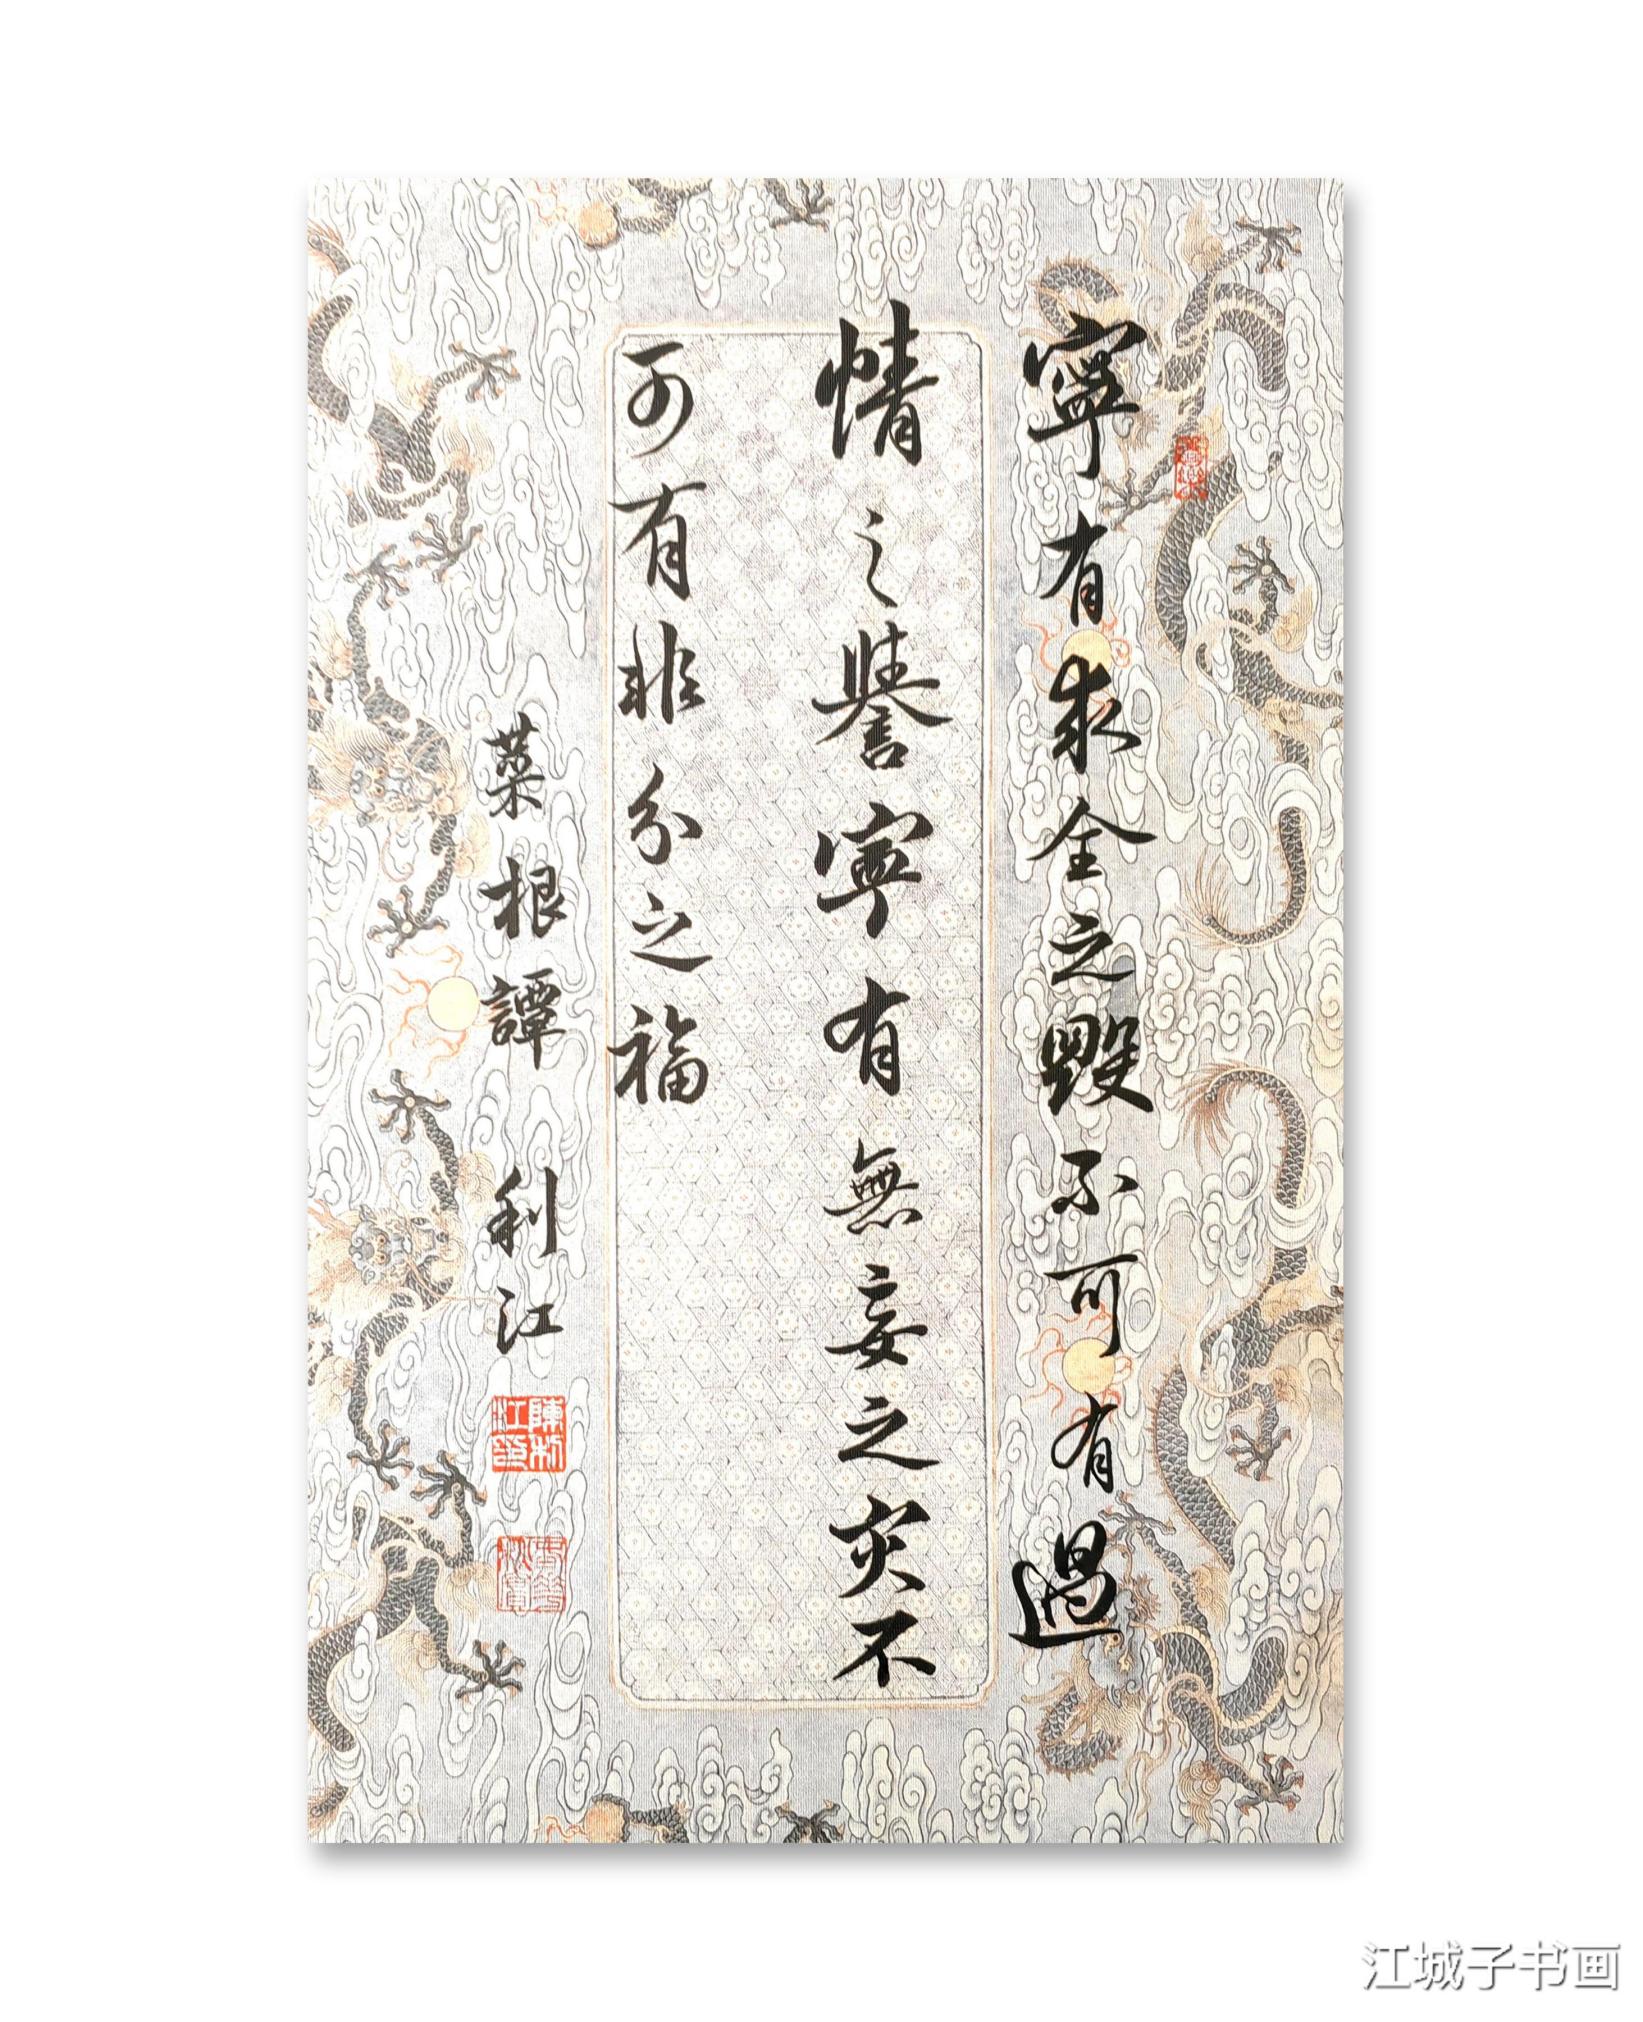 寧有求全之毀不可有過
情之譽寧有無妄之灾不
可有非分之福
菜根譚 利江
陳利江印
江城子书画